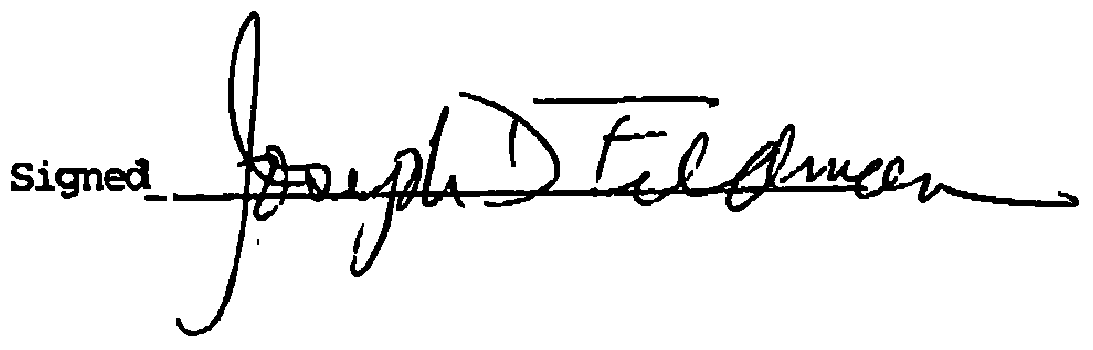 Signed Joseph D Feldman